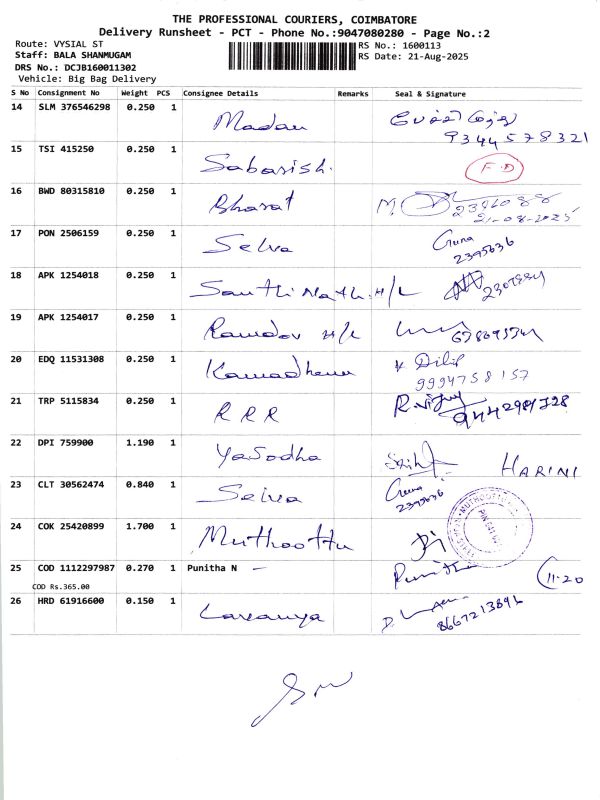 THE PROFESSIONAL COURIERS, COIMBATORE
Delivery Runsheet - PCT - Phone No.:9047080280 - Page No.:2
Route: VYSIAL ST
RS No.: 1600113
Staff: BALA SHANMUGAM
RS Date: 21-Aug-2025
DRS No.: DCJB160011302
Vehicle: Big Bag Delivery
S No Consignment No Weight PCS Consignee Details Remarks Seal & Signature
14 SLM 376546298 0.250 1 Madan
9344578321
15 TSI 415250 0.250 1 Sabarish. F.D
16 BWD 80315810 0.250 1 Bharat M.
21-08-2025
17 PON 2506159 0.250 1 Selva Guna
2395636
18 APK 1254018 0.250 1 Santhi Nath. H/L
19 APK 1254017 0.250 1 Ramdev H/L
20 EDQ 11531308 0.250 1 Kamadhenu Dilip
9994758157
21 TRP 5115834 0.250 1 RRR R.Vijay
22 DPI 759900 1.190 1 Yasodha HARINI
23 CLT 30562474 0.840 1 Selva Guna
2395636
24 COK 25420899 1.700 1 Muthoottu
25 COD 1112297987 0.270 1 Punitha N - Punitha 11.20
COD Rs.365.00
26 HRD 61916600 0.150 1 Lavanya D.